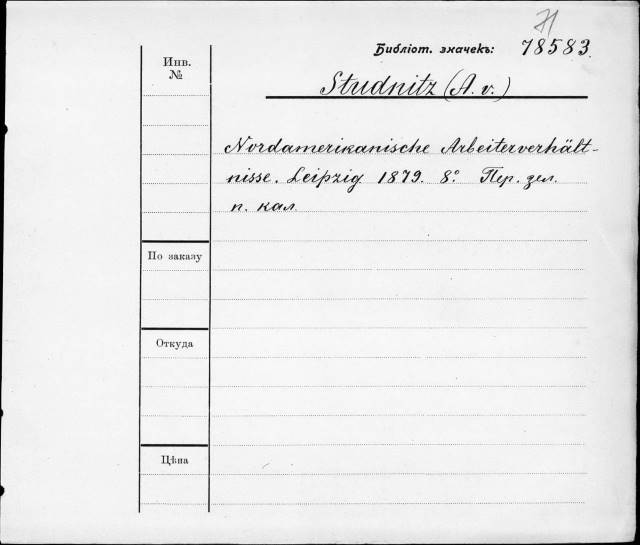 Библіот. значекъ: 78583.
Инв.
№
Studnitz (A. v.)
Nordamerikanische Arbeiterverhält-
nisse. Leipzig 1879. 8º. Пер. дел.
п. кал.
По заказу
Откуда
Цѣна